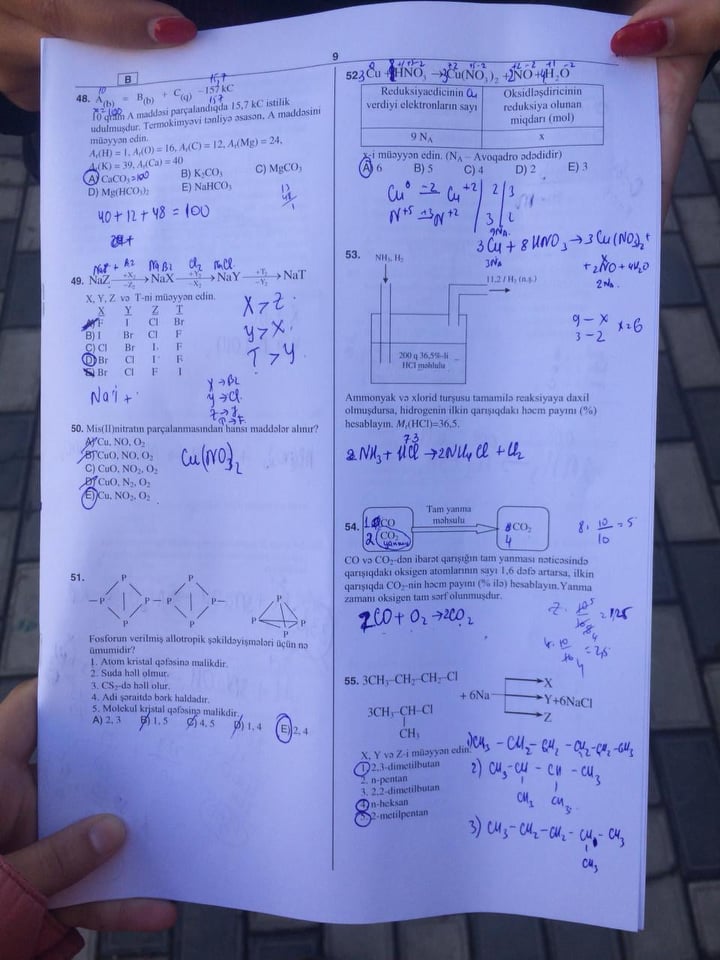 9
B
15,7
48. A(b) = B(b) + C(q) −157 kC
10 qram A maddəsi parçalandıqda 15,7 kC istilik
udulmuşdur. Termokimyəvi tənliyə əsasən, A maddəsini
müəyyən edin.
Aᵣ(H) = 1, Aᵣ(O) = 16, Aᵣ(C) = 12, Aᵣ(Mg) = 24,
Aᵣ(K) = 39, Aᵣ(Ca) = 40
A) CaCO₃ =100
B) K₂CO₃
C) MgCO₃
D) Mg(HCO₃)₂
E) NaHCO₃
40+12+48 = 100
49. NaZ +X₂ −Z₂ NaX +Y₂ −X₂ NaY +T₂ −Y₂ NaT
X, Y, Z və T-ni müəyyən edin.
X Y Z T
A) F I Cl Br
B) I Br Cl F
C) Cl Br I F
D) Br Cl I F
E) Br Cl F I
X > Z
Y > X
T > Y
X → Br
Y → Cl
Z → I
T → F
50. Mis(II)nitratın parçalanmasından hansı maddələr alınır?
A) Cu, NO, O₂
B) CuO, NO, O₂
C) CuO, NO₂, O₂
D) CuO, N₂, O₂
E) Cu, NO₂, O₂
Cu(NO₃)₂
51.
P P
–P P– –P P– P
P P P P P
Fosforun verilmiş allotropik şəkildəyişmələri üçün nə
ümumidir?
1. Atom kristal qəfəsinə malikdir.
2. Suda həll olmur.
3. CS₂-də həll olur.
4. Adi şəraitdə bərk haldadır.
5. Molekul kristal qəfəsinə malikdir.
A) 2, 3 B) 1, 5 C) 4, 5 D) 1, 4 E) 2, 4
52. 3Cu + 8HNO₃ → 3Cu(NO₃)₂ + 2NO + 4H₂O
Reduksiyaedicinin Cu
verdiyi elektronların sayı
Oksidləşdiricinin
reduksiya olunan
miqdarı (mol)
9 N_A
x
x-i müəyyən edin. (N_A – Avoqadro ədədidir)
A) 6 B) 5 C) 4 D) 2 E) 3
Cu⁰ −2 Cu⁺² 2 3
N⁺⁵ +3 N⁺² 3 2
9Na
3Cu + 8HNO₃ → 3Cu(NO₃)₂ +
3Na
+ 2NO + 4H₂O
2Na
9 – x
3 – 2 x=6
53.
NH₃, H₂
11,2 l H₂ (n.ş.)
200 q 36,5%-li
HCl məhlulu
Ammonyak və xlorid turşusu tamamilə reaksiyaya daxil
olmuşdursa, hidrogenin ilkin qarışıqdakı həcm payını (%)
hesablayın. Mᵣ(HCl)=36,5.
54.
CO
CO₂
Tam yanma
məhsulu
CO₂
4
CO və CO₂-dən ibarət qarışığın tam yanması nəticəsində
qarışıqdakı oksigen atomlarının sayı 1,6 dəfə artarsa, ilkin
qarışıqda CO₂-nin həcm payını (% ilə) hesablayın. Yanma
zamanı oksigen tam sərf olunmuşdur.
2CO + O₂ → 2CO₂
55. 3CH₃–CH₂–CH₂–Cl
3CH₃–CH–Cl
CH₃
+ 6Na
X
Y+6NaCl
Z
X, Y və Z-i müəyyən edin.
1. 2,3-dimetilbutan
2. n-pentan
3. 2,2-dimetilbutan
4. n-heksan
5. 2-metilpentan
1) CH₃ – CH₂ – CH₂ – CH₂ – CH₂ – CH₃
2) CH₃ – CH – CH – CH₃
CH₃ CH₃
3) CH₃ – CH₂ – CH₂ – CH – CH₃
CH₃